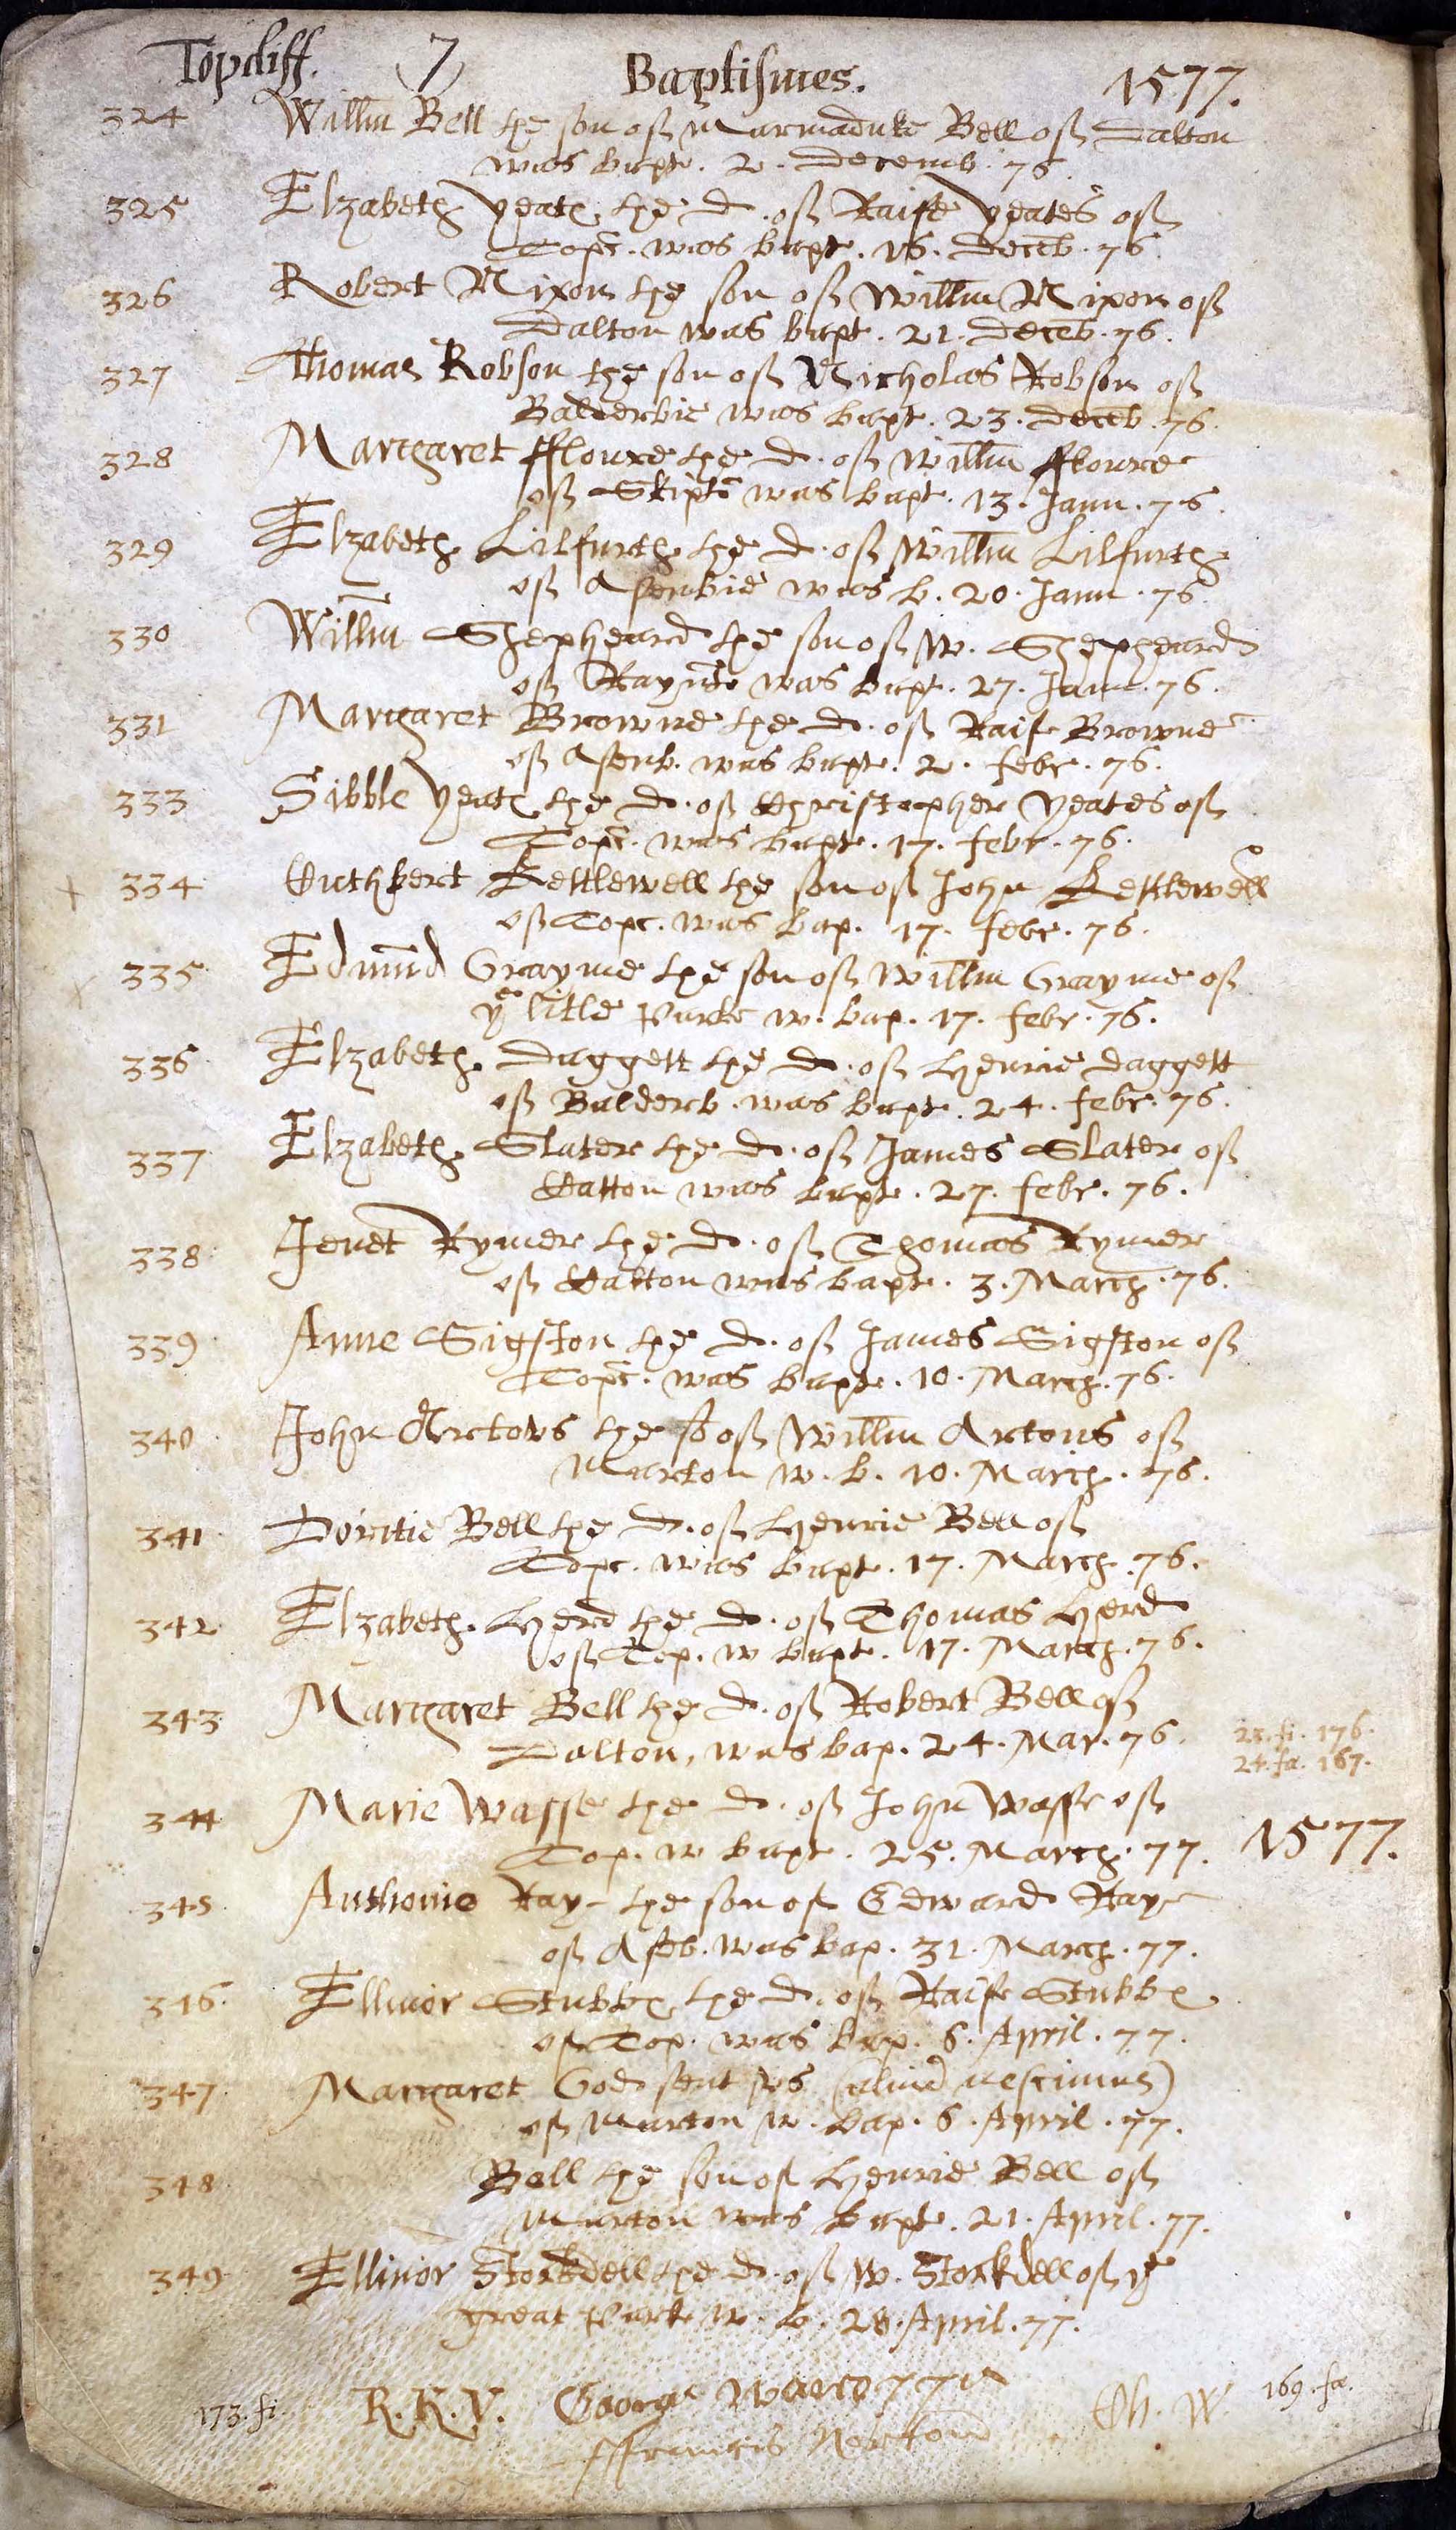 Topcliff. 7 Baptismes. 1577.
324 Willm Bell the son of Marmaduke Bell of Dalton
was bapt. 2. Decemb. 76.
325 Elzabeth Yeates the d. of Raife Yeates of
Topc. was bapt. 16. Deceb. 76.
326 Robert Nixon the son of Willm Nixon of
Dalton was bapt. 21. Deceb. 76.
327 Thomas Robson the son of Nicholas Robson of
Balderbie was bapt. 23. Deceb. 76.
328 Margaret fflowre the d. of Willm fflowre
of Skipto was bapt. 13. Janu. 76.
329 Elzabeth Lilfurth the d. of Willm Lilfurth
of Asenbie was b. 20. Janu. 76.
330 Willm Shepheard the son of W. Shepheard
of Raynto was bapt. 27. Janu. 76.
331 Margaret Browne the d. of Raife Browne
of Asenb. was bapt. 2. febr. 76.
333 Sibble Yeates the d. of Christopher Yeates of
Topc. was bapt. 17. febr. 76.
334 Cuthbert Kettlewell the son of John Kettlewell
of Topc. was bap. 17. febr. 76.
335 Edmund Grayme the son of Willm Grayme of
ye litle Parke w. bap. 17. febr. 76.
336 Elzabeth Daggett the d. of Henrie Daggett
of Balderb. was bapt. 24. febr. 76.
337 Elzabeth Slater the d. of James Slater of
Catton was bapt. 27. febr. 76.
338 Jenet Rymer the d. of Thomas Rymer
of Catton was bapt. 3. March. 76.
339 Anne Sigston the d. of James Sigston of
Topc. was bapt. 10. March. 76.
340 John Arctons the so of Willm Arctons of
Marton w. b. 10. March. 76.
341 Doritie Bell the d. of Henrie Bell of
Topc. was bapt. 17. March. 76.
342 Elzabeth Herd the d. of Thomas Herd
of Top. w bapt. 17. March. 76.
343 Margaret Bell the d. of Robert Bell of
Dalton, was bap. 24. Mar. 76.
fi. 176.
24. fa. 167.
344 Marie Wasse the d. of John Wasse of
Top. w bapt. 25. March. 77. 1577.
345 Anthonie Ray the son of Edward Ray
of Aseb. was bap. 31. March. 77.
346 Ellinor Stubbes the d. of Raife Stubbes
of Top. was bap. 6. April. 77.
347 Margaret God sent vs (aliud nescimus)
of Marton w. bap. 6. April. 77.
348 Bell the son of Henrie Bell of
Marton was bapt. 21. April. 77.
349 Ellinor Stockdell the d. of W. Stockdell of ye
great Parke w. b. 28. April. 77.
173. fi. R. K. V. George Ch. W. 169. fa.
ffrancis Norton